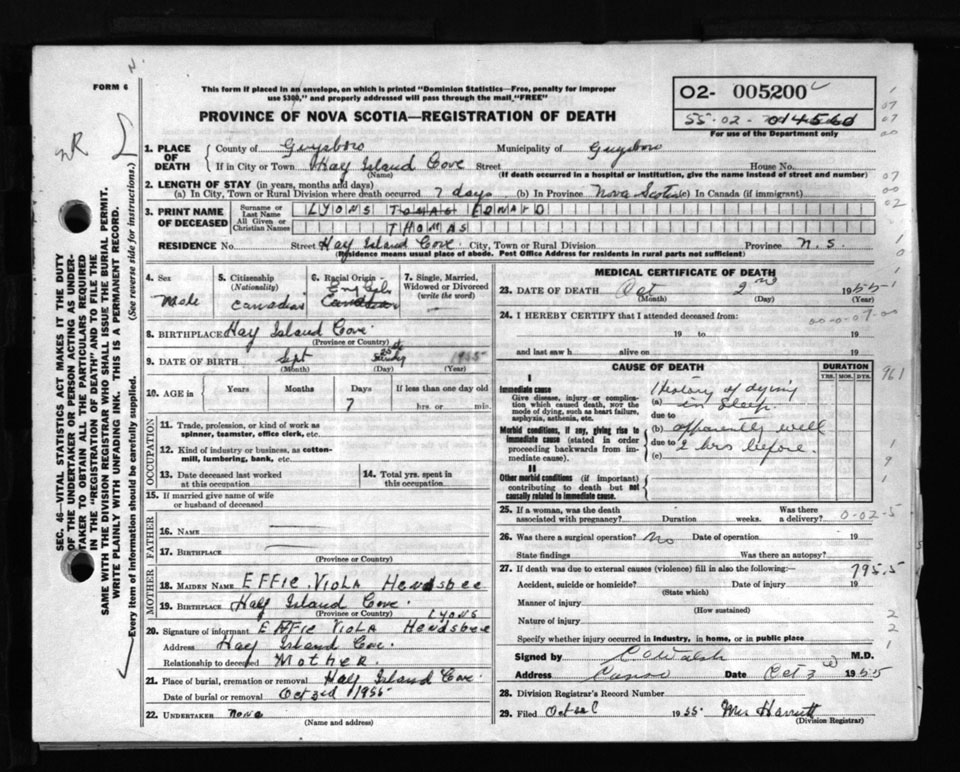 FORM 6
This form if placed in an envelope, on which is printed "Dominion Statistics—Free, penalty for improper
use $300," and properly addressed will pass through the mail "FREE"
PROVINCE OF NOVA SCOTIA—REGISTRATION OF DEATH
O2- 005200
55-02-
For use of the Department only
1. PLACE OF DEATH
County of Guysboro Municipality of Guysboro
If in City or Town Hay Island Cove Street House No.
(Name) (If death occurred in a hospital or institution, give the name instead of street and number)
2. LENGTH OF STAY (in years, months and days)
(a) In City, Town or Rural Division where death occurred 7 days (b) In Province Nova Scotia (c) In Canada (if immigrant)
3. PRINT NAME OF DECEASED
Surname or Last Name LYONS TOMAS EDWARD
All Given or Christian Names THOMAS
RESIDENCE No. Street Hay Island Cove City, Town or Rural Division Province N.S.
(Residence means usual place of abode. Post Office Address for residents in rural parts not sufficient)
4. Sex
Male
5. Citizenship (Nationality)
Canadian
6. Racial Origin
English
Canadian
7. Single, Married, Widowed or Divorced (write the word)
8. BIRTHPLACE Hay Island Cove
(Province or Country)
9. DATE OF BIRTH Sept 25th 1955
(Month) (Day) (Year)
10. AGE in Years Months Days If less than one day old
7 hrs. or min.
OCCUPATION
11. Trade, profession, or kind of work as spinner, teamster, office clerk, etc.
12. Kind of industry or business, as cotton-mill, lumbering, bank, etc.
13. Date deceased last worked at this occupation
14. Total yrs. spent in this occupation
15. If married give name of wife or husband of deceased
FATHER
16. NAME
17. BIRTHPLACE
(Province or Country)
MOTHER
18. MAIDEN NAME EFFIE VIOLA Hendsbee
19. BIRTHPLACE Hay Island Cove
(Province or Country) Lyons
20. Signature of informant EFFIE VIOLA Hendsbee
Address Hay Island Cove.
Relationship to deceased Mother.
21. Place of burial, cremation or removal Hay Island Cove.
Date of burial or removal Oct 3rd 1955
22. UNDERTAKER none
(Name and address)
MEDICAL CERTIFICATE OF DEATH
23. DATE OF DEATH Oct 2nd 1955
(Month) (Day) (Year)
24. I HEREBY CERTIFY that I attended deceased from:
19 to 19
and last saw h alive on 19
CAUSE OF DEATH
DURATION
YRS. MOS. DYS.
I
Immediate cause
Give disease, injury or complication which caused death, NOT the mode of dying, such as heart failure, asphyxia, asthenia, etc.
(a) History of dying in sleep.
due to
Morbid conditions, if any, giving rise to immediate cause (stated in order proceeding backwards from immediate cause).
(b) apparently well
due to
(c) 2 hrs before.
II
Other morbid conditions (if important) contributing to death but not causally related to immediate cause.
25. If a woman, was the death associated with pregnancy? Duration weeks. Was there a delivery?
0-02-5
26. Was there a surgical operation? No Date of operation 19
State findings Was there an autopsy?
27. If death was due to external causes (violence) fill in also the following:—
795.5
Accident, suicide or homicide? Date of injury 19
(State which)
Manner of injury
(How sustained)
Nature of injury
Specify whether injury occurred in industry, in home, or in public place
Signed by C A Walsh M.D.
Address Canso Date Oct 3 1955
28. Division Registrar's Record Number
29. Filed Oct 1955 Mrs
(Division Registrar)
SEC. 46—VITAL STATISTICS ACT MAKES IT THE DUTY
OF THE UNDERTAKER OR PERSON ACTING AS UNDER-
TAKER TO OBTAIN ALL THE PARTICULARS REQUIRED
IN THE "REGISTRATION OF DEATH" AND TO FILE THE
SAME WITH THE DIVISION REGISTRAR WHO SHALL ISSUE THE BURIAL PERMIT.
WRITE PLAINLY WITH UNFADING INK. THIS IS A PERMANENT RECORD.
Every item of information should be carefully supplied. (See reverse side for instructions.)